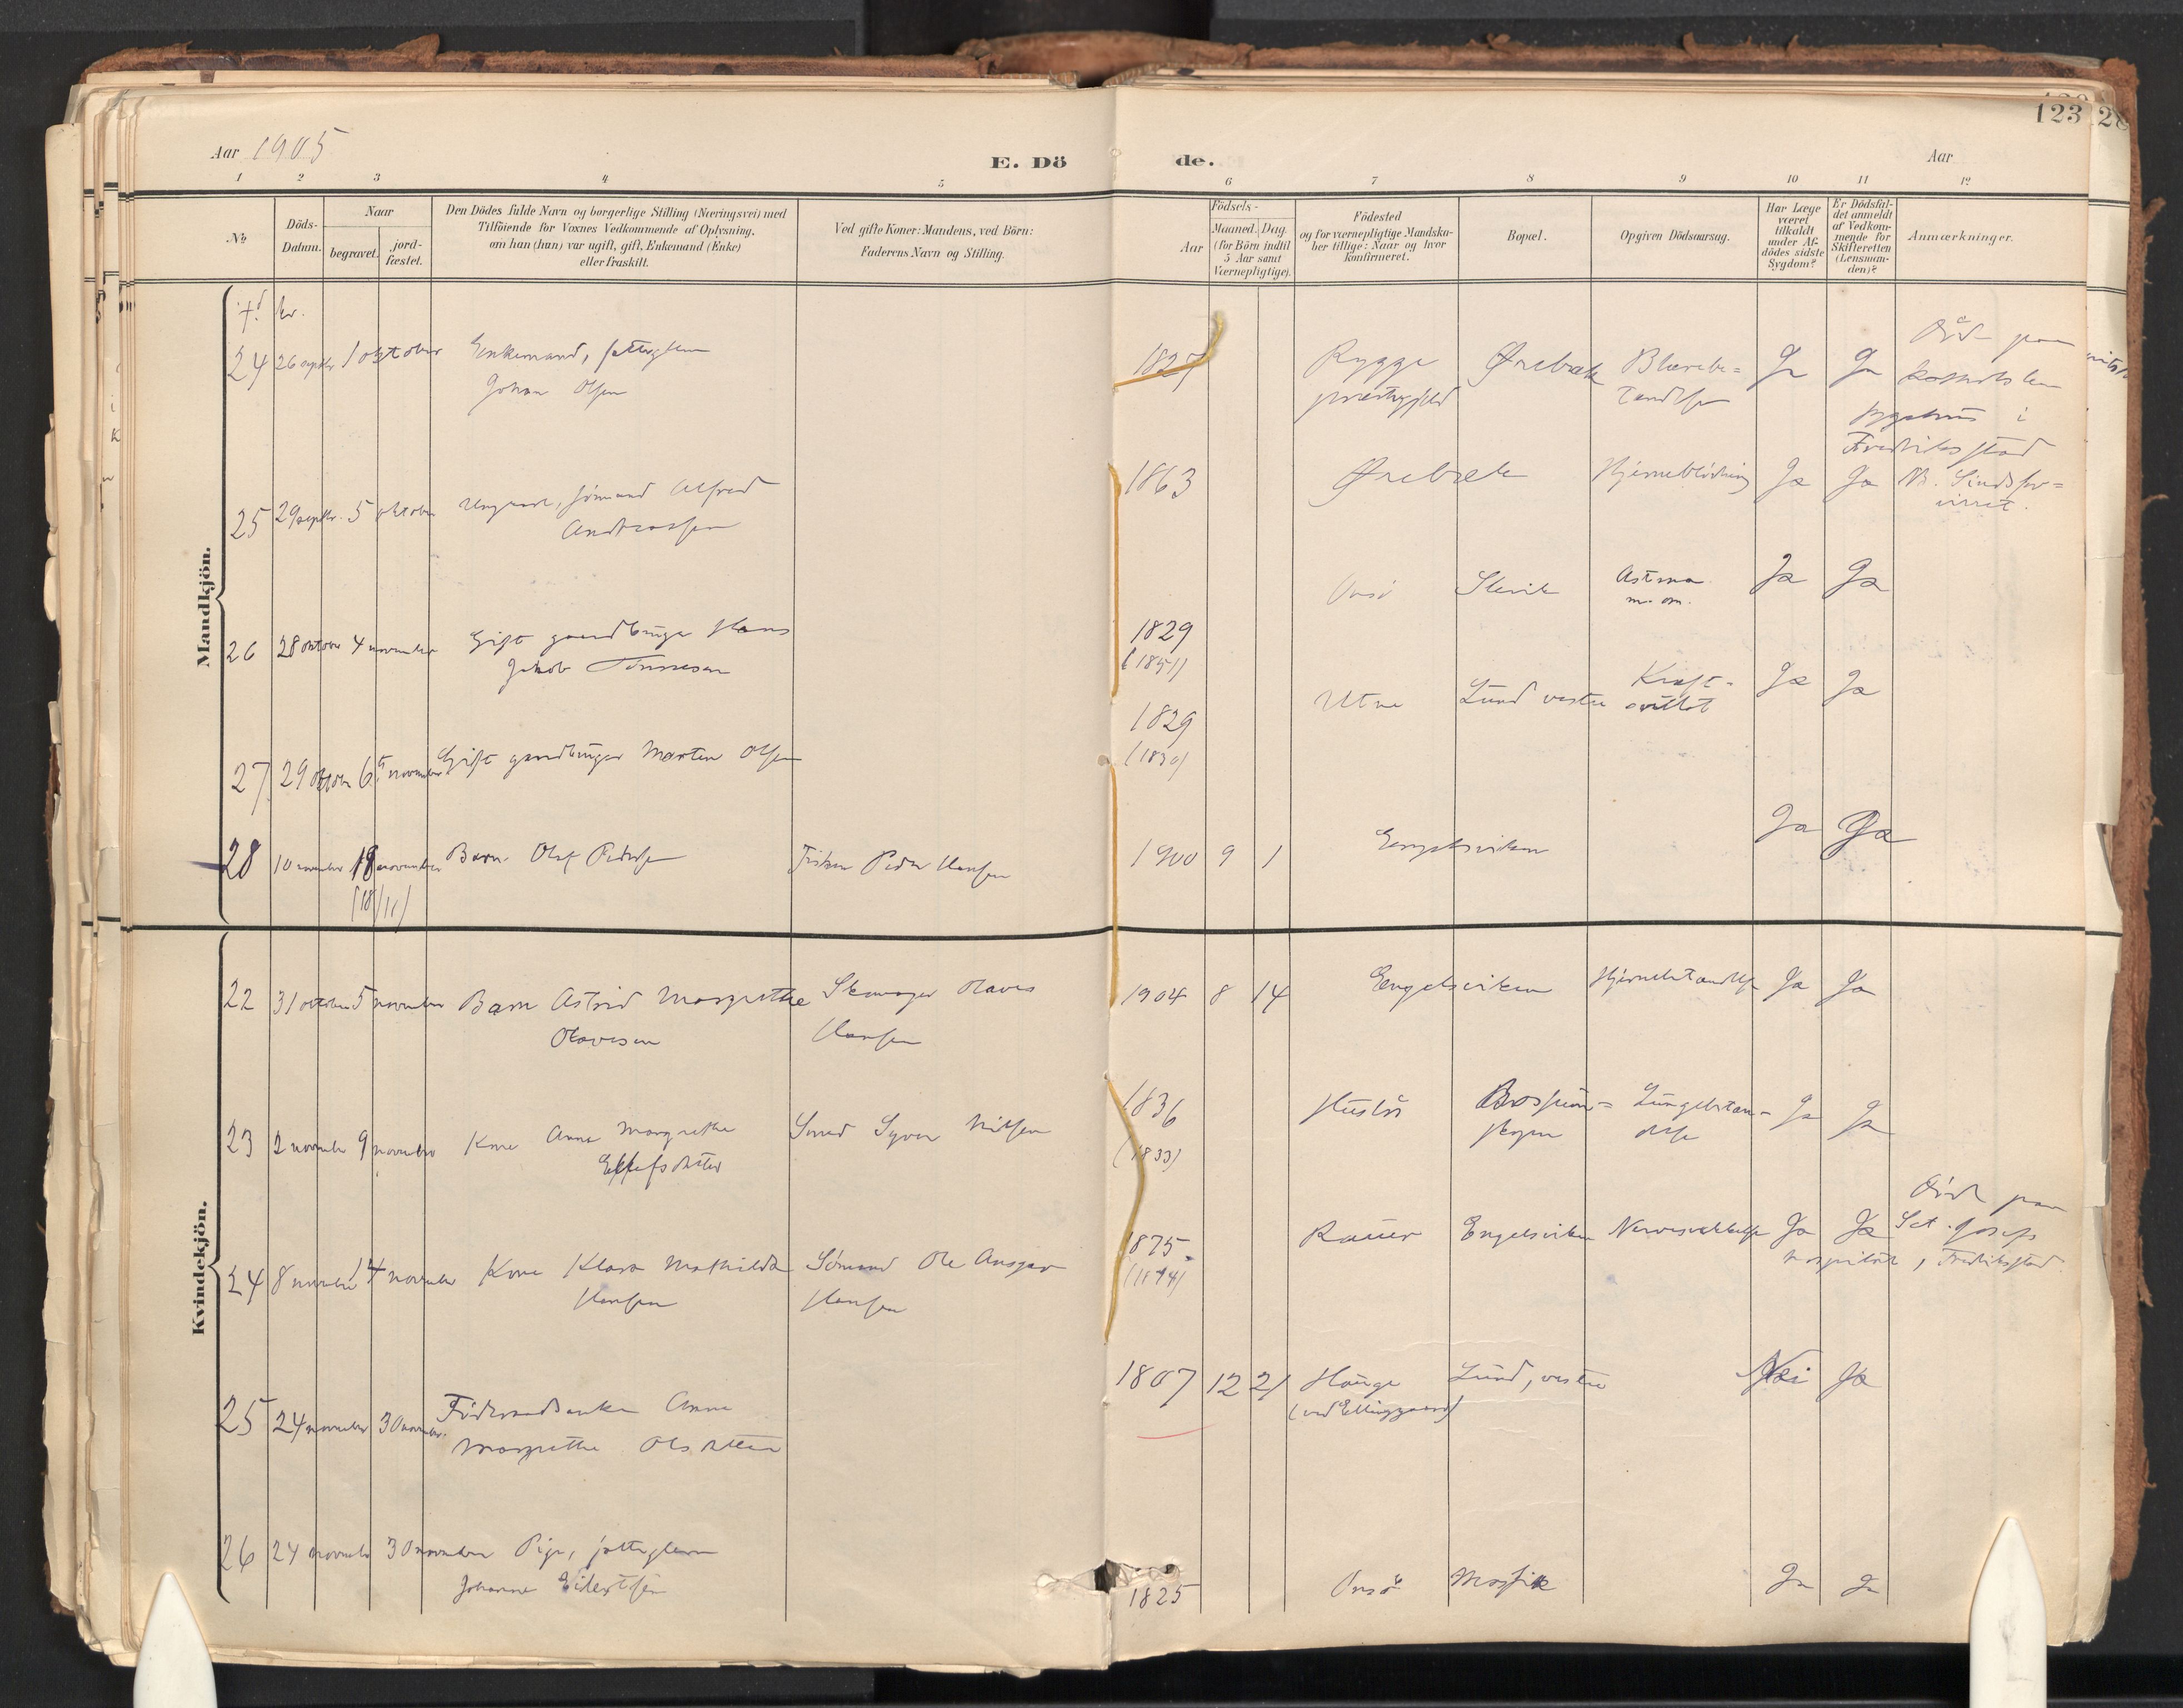 123
Aar 1905
E. Dö
de.
Aar
1 2 3 4 5 6 7 8 9 10 11 12
No
Döds-
Datum.
Naar
begravet.
jord-
fæstet.
Den Dödes fulde Navn og borgerlige Stilling (Næringsvei) med
Tilföiende for Voxnes Vedkommende af Oplysning,
om han (hun) var ugift, gift, Enkemand (Enke)
eller fraskilt.
Ved gifte Koner: Mandens, ved Börn:
Faderens Navn og Stilling.
Födsels-
Aar
Maaned. Dag.
(for Börn indtil
5 Aar samt
Værnepligtige).
Födested
og for værnepligtige Mandska-
ber tillige: Naar og hvor
konfirmeret.
Bopæl.
Opgiven Dödsaarsag.
Har Læge
været
tilkaldt
under Af-
dödes sidste
Sygdom?
Er Dödsfal-
det anmeldt
af Vedkom-
mende for
Skifteretten
(Lensman-
den)?
Anmærkninger.
Mandkjön.
24 26 septbr 1 oktober Enkemand, fattiglem
Johan Olsen
1827 Rygge
præstegjeld
Ørebæk Blærebe=
tændelse
Ja Ja
Död paa
sygehus i
Fredriksstad
25 29 septbr. 5 oktober Ungkarl, sömand Alfred
Andreassen
1863 Ørebæk Hjerneblödning Ja Ja NB. Sindsfor=
virret.
26 28 oktober 4 november Gift gaardbruger Hans
Jakob Tönnesen
1829
(1851)
Onsö Slevik Astma
m. m.
Ja Ja
27 29 oktober 6 november Gift gaardbruger Martin Olsen
1829
(1830)
Utne Lund vestre Kræft-
svulst
Ja Ja
28 10 november 18 november Barn Olaf Pedersen Fisker Peder Hansen
(18/11)
1900 9 1 Engelsviken Ja Ja
Kvindekjön.
22 31 oktober 5 november Barn Astrid Margrethe
Olavesen
Olaves
Hansen
1904 8 14 Engelsviken Hjernebetændelse Ja Ja
23 2 november 9 november Kone Anna Margrethe
Ellefsdatter
Smed Syver Nilsen
1836
(1833)
Huslö Lungebetæn-
delse
Ja Ja
24 8 november 14 november Kone Klara Mathilde
Hansen
Sömand Ole Ansgar
Hansen
1875
Rauer Engelsviken Nervesvækkelse Ja Ja
Död paa
Sct. Josefs
hospital, Fredriksstad
25 24 november 30 novembr. Föderaadsenke Anne
Margrethe Olsdatter
1807 12 21 Hauge
(ved Elingaard)
Lund, vestre Nei Ja
26 24 november 30 november Pige, fattiglem
Johanne Eilertsen
1825 Onsö Mosvik Ja Ja